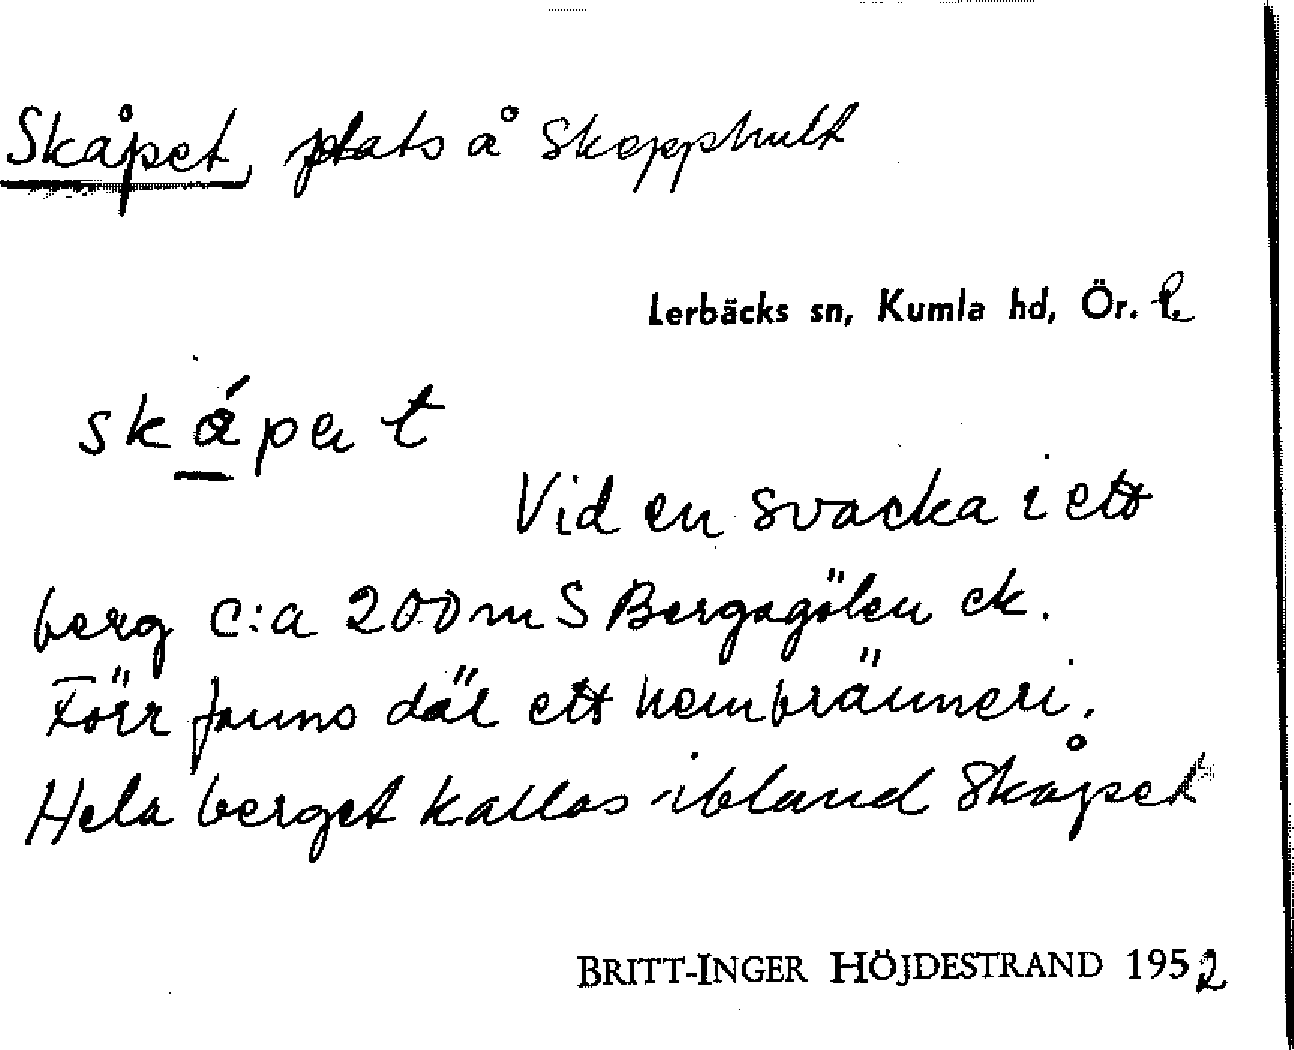 Skåpet, plats å Skepphult
Lerbäcks sn, Kumla hd, Ör. l.
skǻpət
Vid en svacka i ett
berg c:a 200 m S Bergagölen ek.
Förr fanns där ett hembränneri.
Hela berget kallas ibland Skåpet
BRITT-INGER HÖJDESTRAND 1952